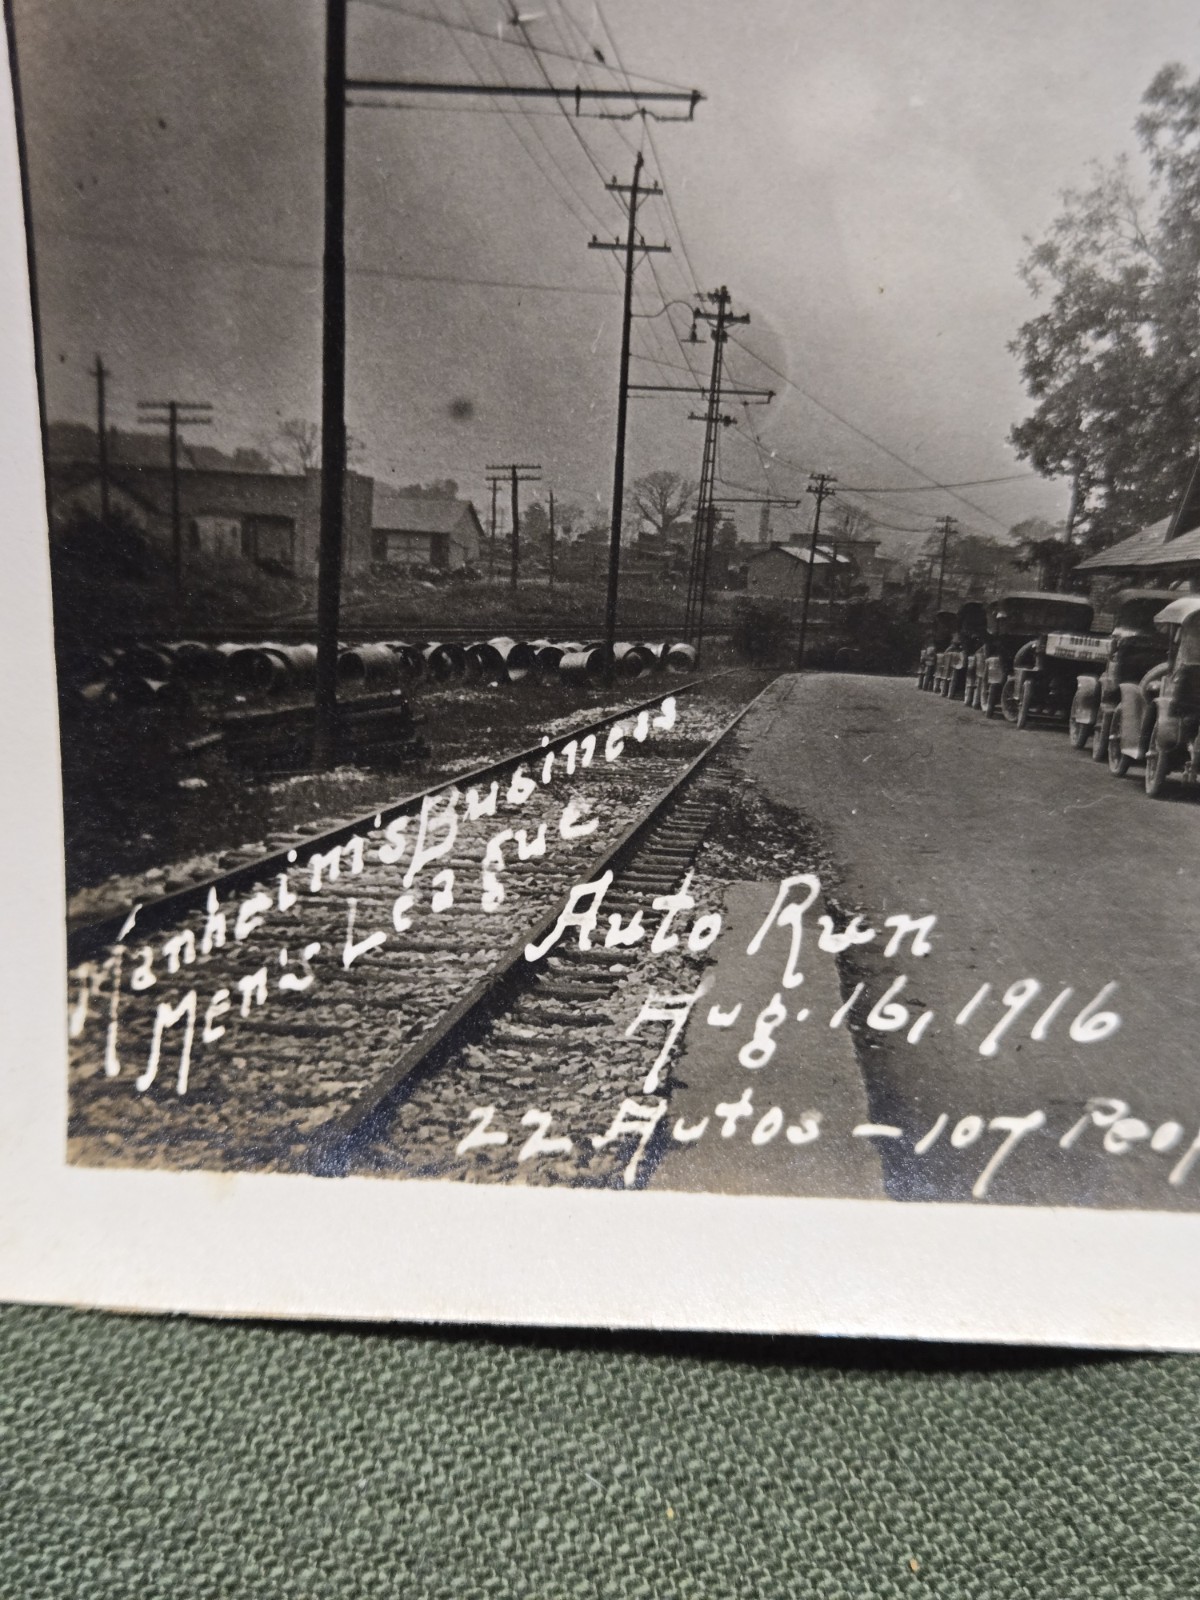 Manheim's Business
Men's League
Auto Run
Aug. 16, 1916
22 Autos – 107 Peop